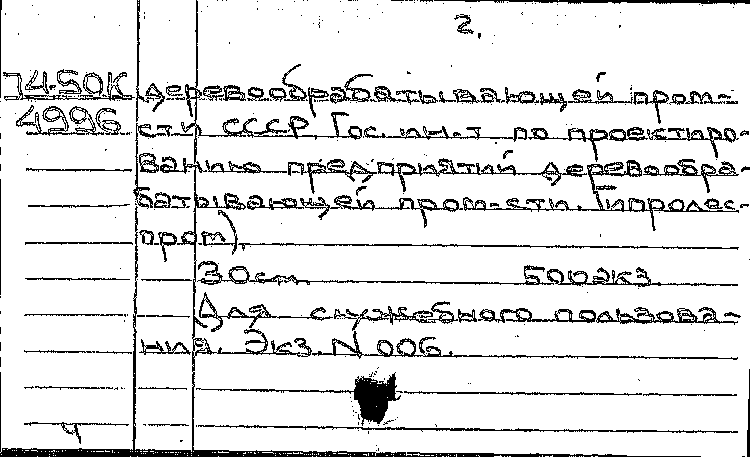 2.
74-50К деревообрабатывающей пром-
4996 сти СССР. Гос. ин-т по проектиро-
ванию предприятий деревообра-
батывающей пром-сти. Гипролес-
пром).
30 см. 500 экз.
Для служебного пользова-
ния. Экз. N 006.
ч